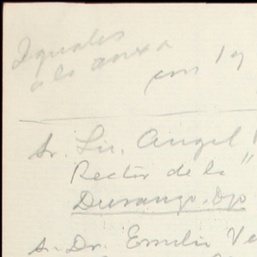 Iguales
a la anexa
con 19
Sr. Lic. Angel
Rector de la "
Durango, Dgo
Sr. Dr. Emilio Ve